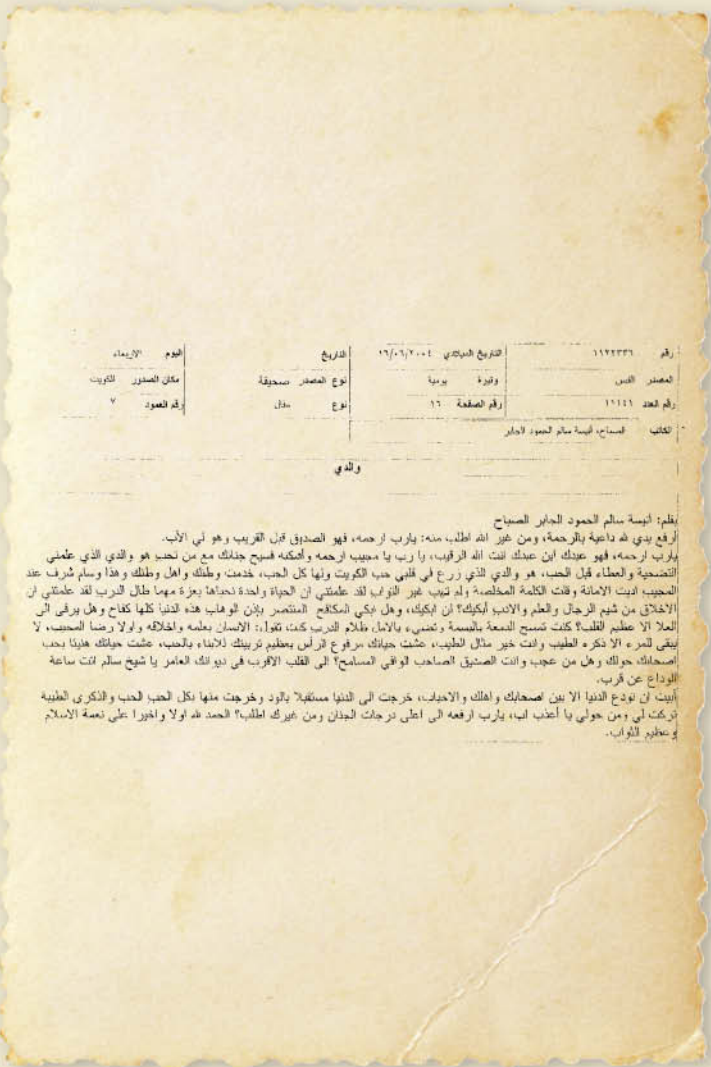 رقم ١١٧٢٣٣٦ التاريخ الميلادي ١٦/٠٦/٢٠٠٤ التاريخ اليوم الاربعاء
المصدر القبس وتيرة يومية نوع المصدر صحيفة مكان الصدور الكويت
رقم العدد ١١١٤٦ رقم الصفحة ١٦ نوع مقال رقم العمود ٧
الكاتب الصباح، أنيسة سالم الحمود الجابر
والدي
بقلم: أنيسة سالم الحمود الجابر الصباح
أرفع يدي لله داعية بالرحمة، ومن غير الله اطلب منه: يارب ارحمه، فهو الصديق قبل القريب وهو لي الأب.
يارب ارحمه، فهو عبدك ابن عبدك انت الله الرقيب، يا رب يا مجيب ارحمه وأسكنه فسيح جناتك مع من تحب هو والدي الذي علمني
التضحية والعطاء قبل الحب، هو والدي الذي زرع في قلبي حب الكويت ولها كل الحب، خدمت وطنك واهل وطنك وهذا وسام شرف عند
المجيب اديت الامانة وقلت الكلمة المخلصة ولم تهب غير التواب لقد علمتني ان الحياة واحدة نحياها بعزة مهما طال الدرب لقد علمتني ان
الاخلاق من شيم الرجال والعلم والادب أبكيك؟ ان ابكيك، وهل نبكي المكافح المنتصر بإذن الوهاب هذه الدنيا كلها كفاح وهل يرقى الى
العلا الا عظيم القلب؟ كنت تمسح الدمعة بالبسمة وتضيء بالامل ظلام الدرب كنت تقول: الانسان بعلمه واخلاقه واولا رضا المجيب، لا
يبقى للمرء الا ذكره الطيب وانت خير مثال الطيب، عشت حياتك مرفوع الرأس بعظيم تربيتك للابناء بالحب، عشت حياتك هنيئا بحب
اصحابك حولك وهل من عجب وانت الصديق الصاحب الوافي المسامح؟ الى القلب الاقرب في ديوانك العامر يا شيخ سالم اتت ساعة
الوداع عن قرب.
أبيت ان تودع الدنيا الا بين اصحابك واهلك والاحباب، خرجت الى الدنيا مستقبلا بالود وخرجت منها بكل الحب الحب والذكرى الطيبة
تركت لي ومن حولي يا أعذب اب، يارب ارفعه الى اعلى درجات الجنان ومن غيرك اطلب؟ الحمد لله اولا واخيرا على نعمة الاسلام
وعظيم الثواب.